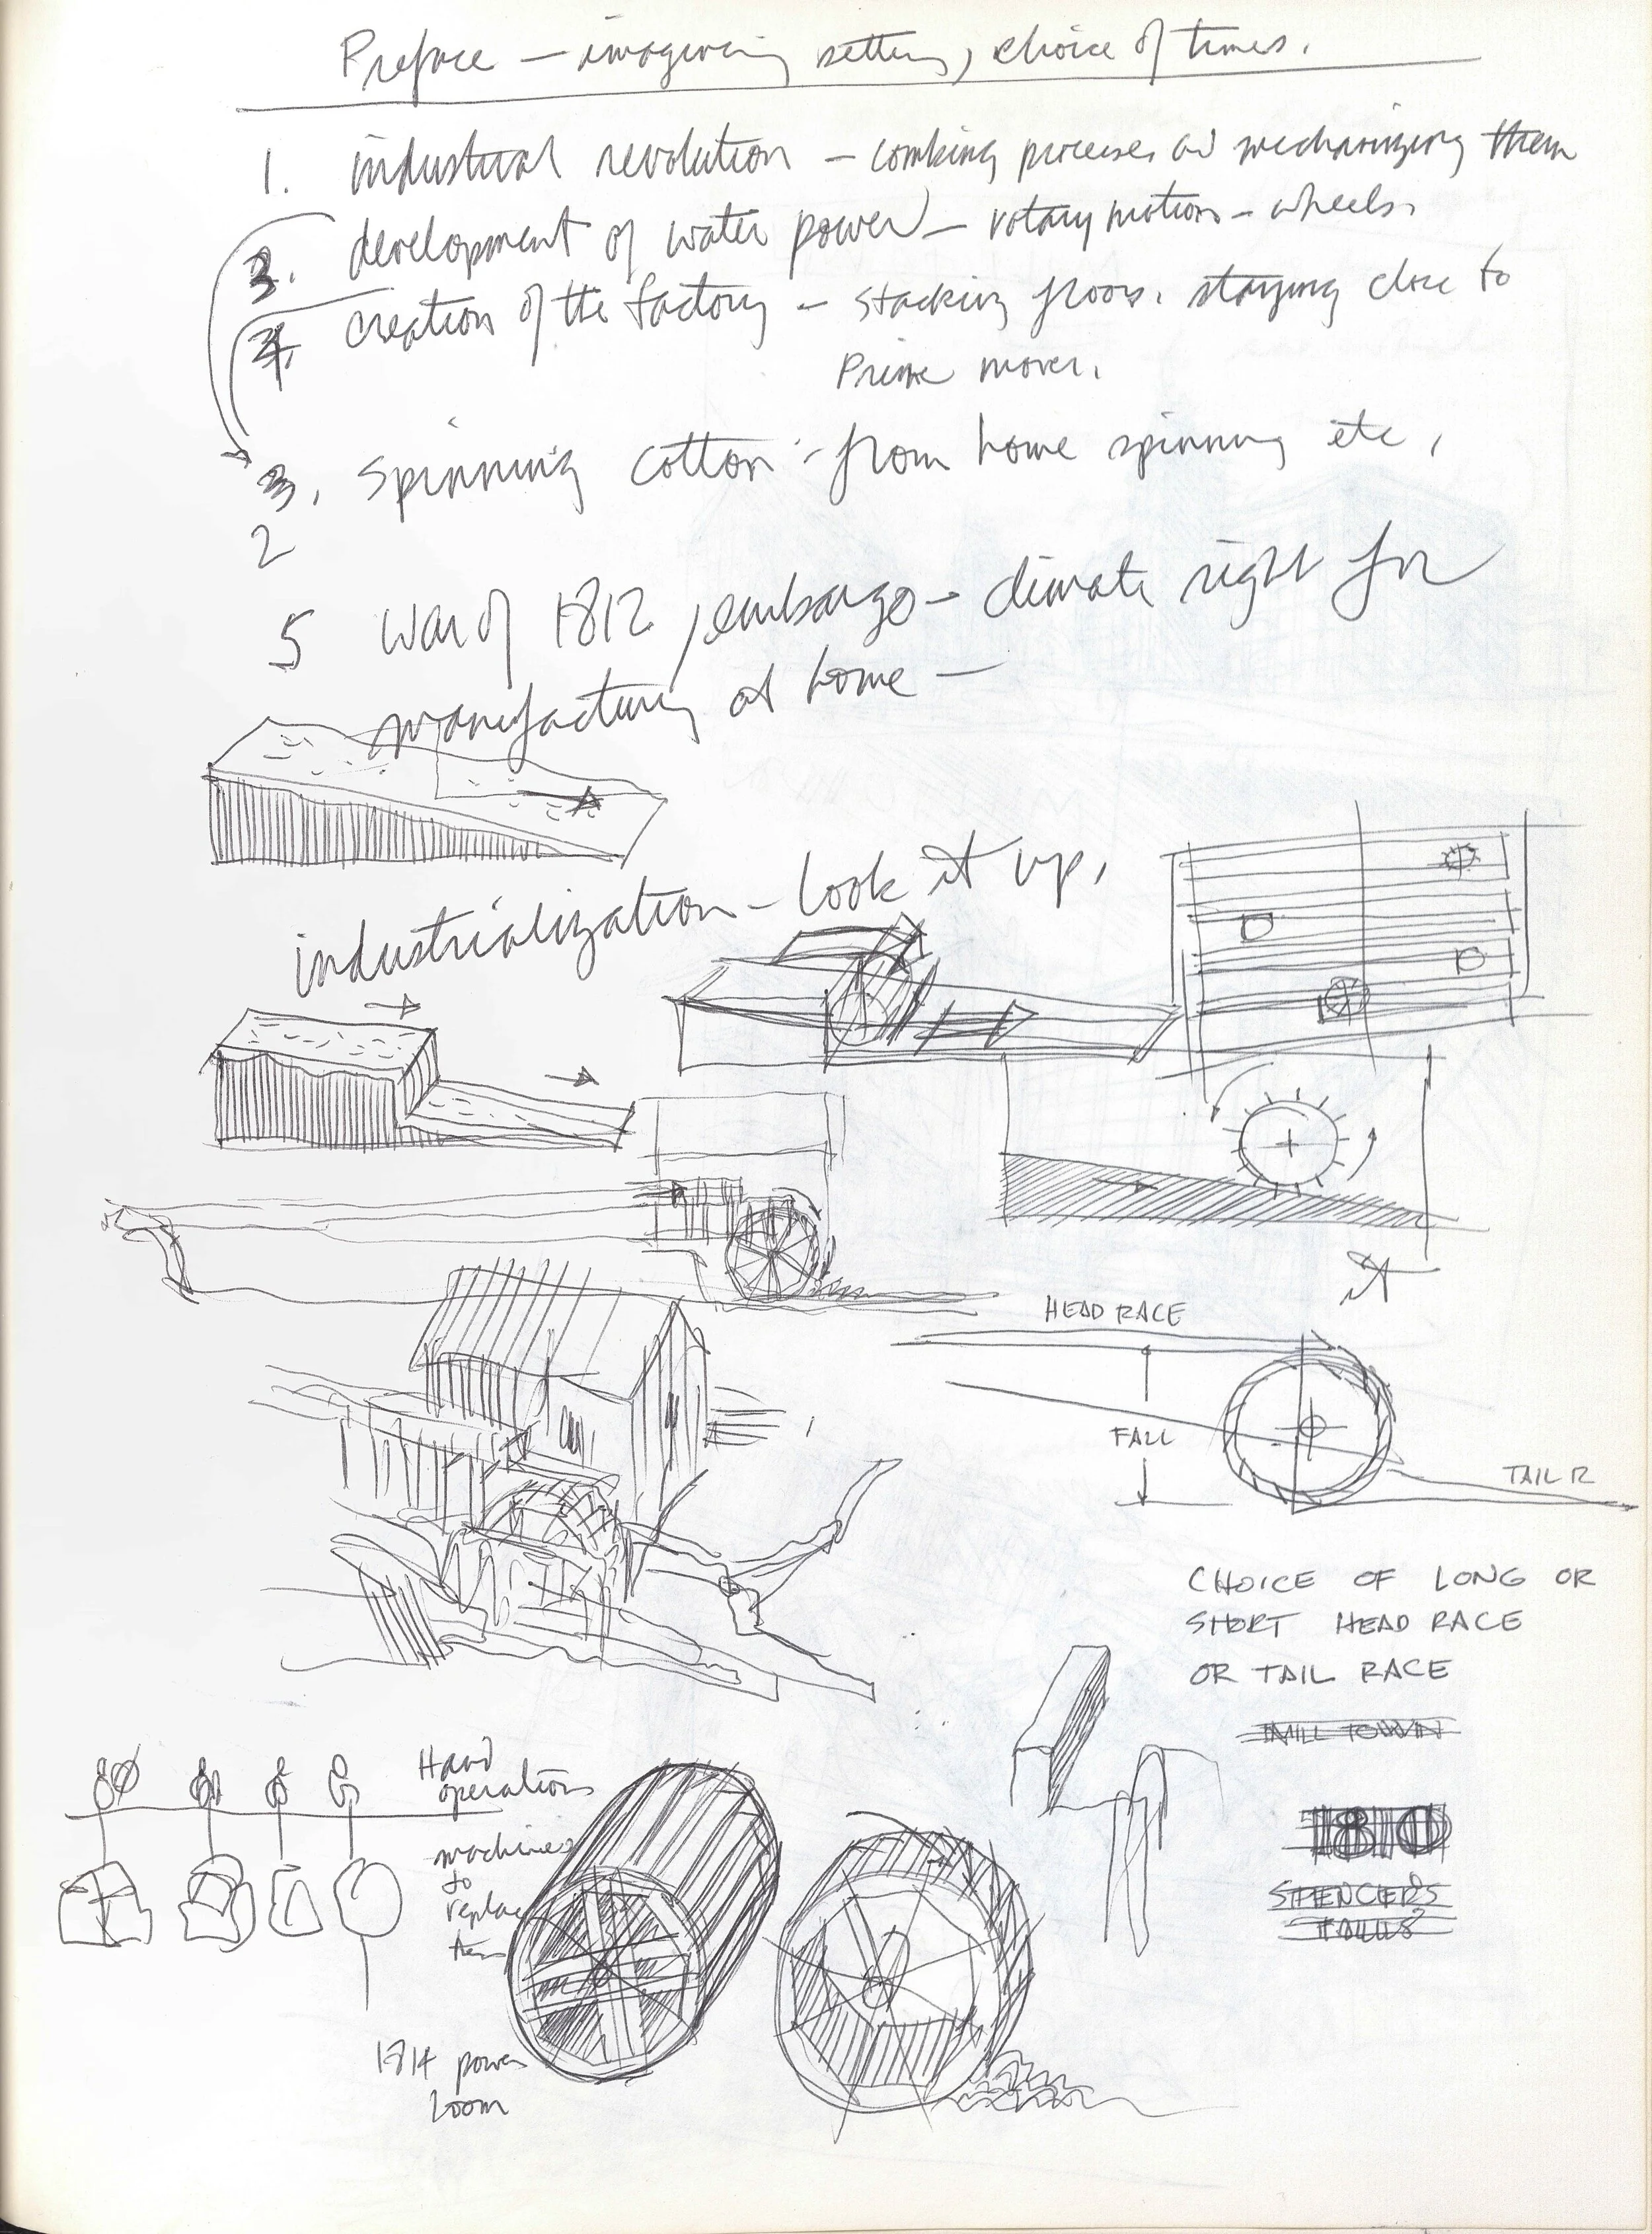 Preface – imagining setting, choice of times.
1. industrial revolution – combing processes and mechanizing them
3. development of water power – rotary motion – wheels.
4. creation of the factory – stacking floors. staying close to
Prime mover.
3. Spinning cotton – from home spinning etc.
2
5 War of 1812, embargo – climate right for
manufacturing at home –
industrialization – look it up.
HEAD RACE
FALL
TAIL R
CHOICE OF LONG OR
SHORT HEAD RACE
OR TAIL RACE
MILL TOWN
Hand
operations
machines
to
replace
them
1810
SPENCER'S
FALLS
1814 power
loom